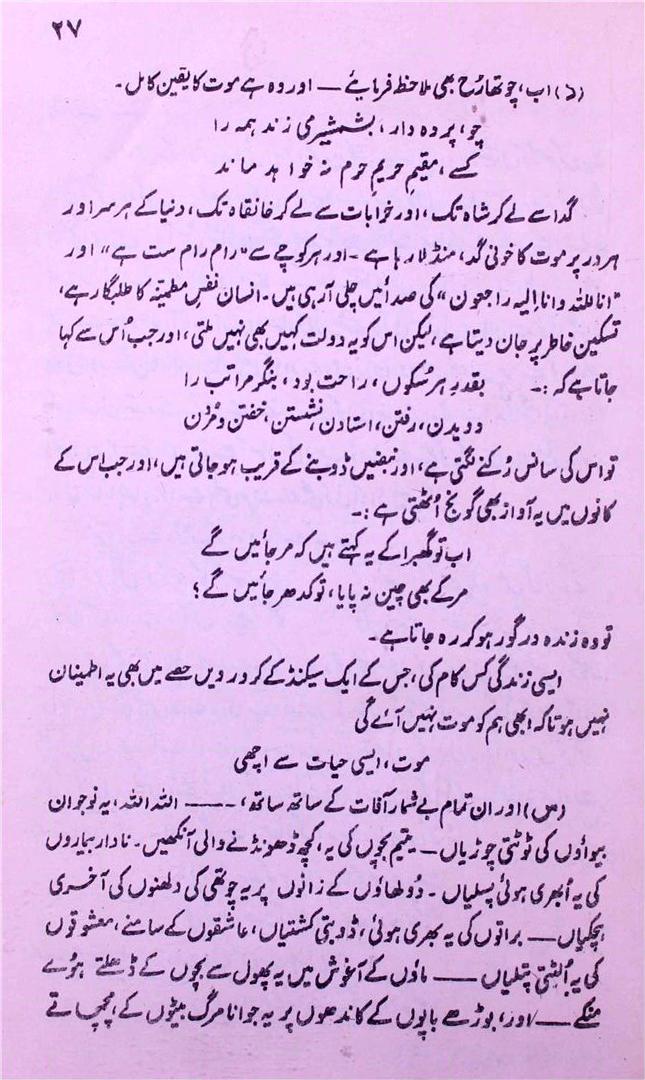 ۲۷
(د) اب، چوتھا رُخ بھی ملاحظہ فرمایئے — اور وہ ہے موت کا یقینِ کامل۔
چو، پردہ دار، بشمشیر می زند ہمہ را
کسے، مقیمِ حریمِ حرم نہ خواہد ماند
گدا سے لے کر شاہ تک، اور خرابات سے لے کر خانقاہ تک، دنیا کے ہر سر اور
ہر در پر موت کا خونی گد، منڈلا رہا ہے۔ اور ہر کوچے سے "رام رام ست ہے" اور
"انا للہ وانا الیہ راجعون" کی صدائیں چلی آ رہی ہیں۔ انسان نفسِ مطمئنہ کا طلبگار ہے،
تسکینِ خاطر پر جان دیتا ہے، لیکن اس کو یہ دولت کہیں بھی نہیں ملتی، اور جب اُس سے کہا
جاتا ہے کہ :۔ بقدرِ ہر سکوں، راحت بود، بنگر مراتب را
دویدن، رفتن، استادن، نشستن، خفتن و مُردن
تو اس کی سانس رُکنے لگتی ہے، اور نبضیں ڈوبنے کے قریب ہو جاتی ہیں، اور جب اس کے
کانوں میں یہ آواز بھی گونج اُٹھتی ہے :۔
اب تو گھبرا کے یہ کہتے ہیں کہ مر جائیں گے
مر کے بھی چین نہ پایا، تو کدھر جائیں گے؟
تو وہ زندہ در گور ہو کر رہ جاتا ہے۔
ایسی زندگی کس کام کی، جس کے ایک سیکنڈ کے کرورویں حصے میں بھی یہ اطمینان
نہیں ہوتا کہ ابھی ہم کو موت نہیں آئے گی
موت، ایسی حیات سے اچھی
(س) اور ان تمام بے شمار آفات کے ساتھ ساتھ، —— اللہ اللہ، یہ نوجوان
بیواؤں کی ٹوٹتی چوڑیاں — یتیم بچوں کی یہ، کچھ ڈھونڈنے والی آنکھیں۔ نادار بیماروں
کی یہ اُبھری ہوئی پسلیاں۔ دُولھاؤں کے زانوں پر یہ چوتھی کی دلھنوں کی آخری
ہچکیاں — براتوں کی یہ بھری ہوئی، ڈوبتی کشتیاں، عاشقوں کے سامنے، معشوقوں
کی یہ اُلٹتی پتلیاں —— ماؤں کے آغوش میں یہ پھول سے بچوں کے ڈھلتے ہوئے
منکے — اور، بوڑھے باپوں کے کاندھوں پر یہ جوانا مرگ بیٹوں کے، مچمچاتے